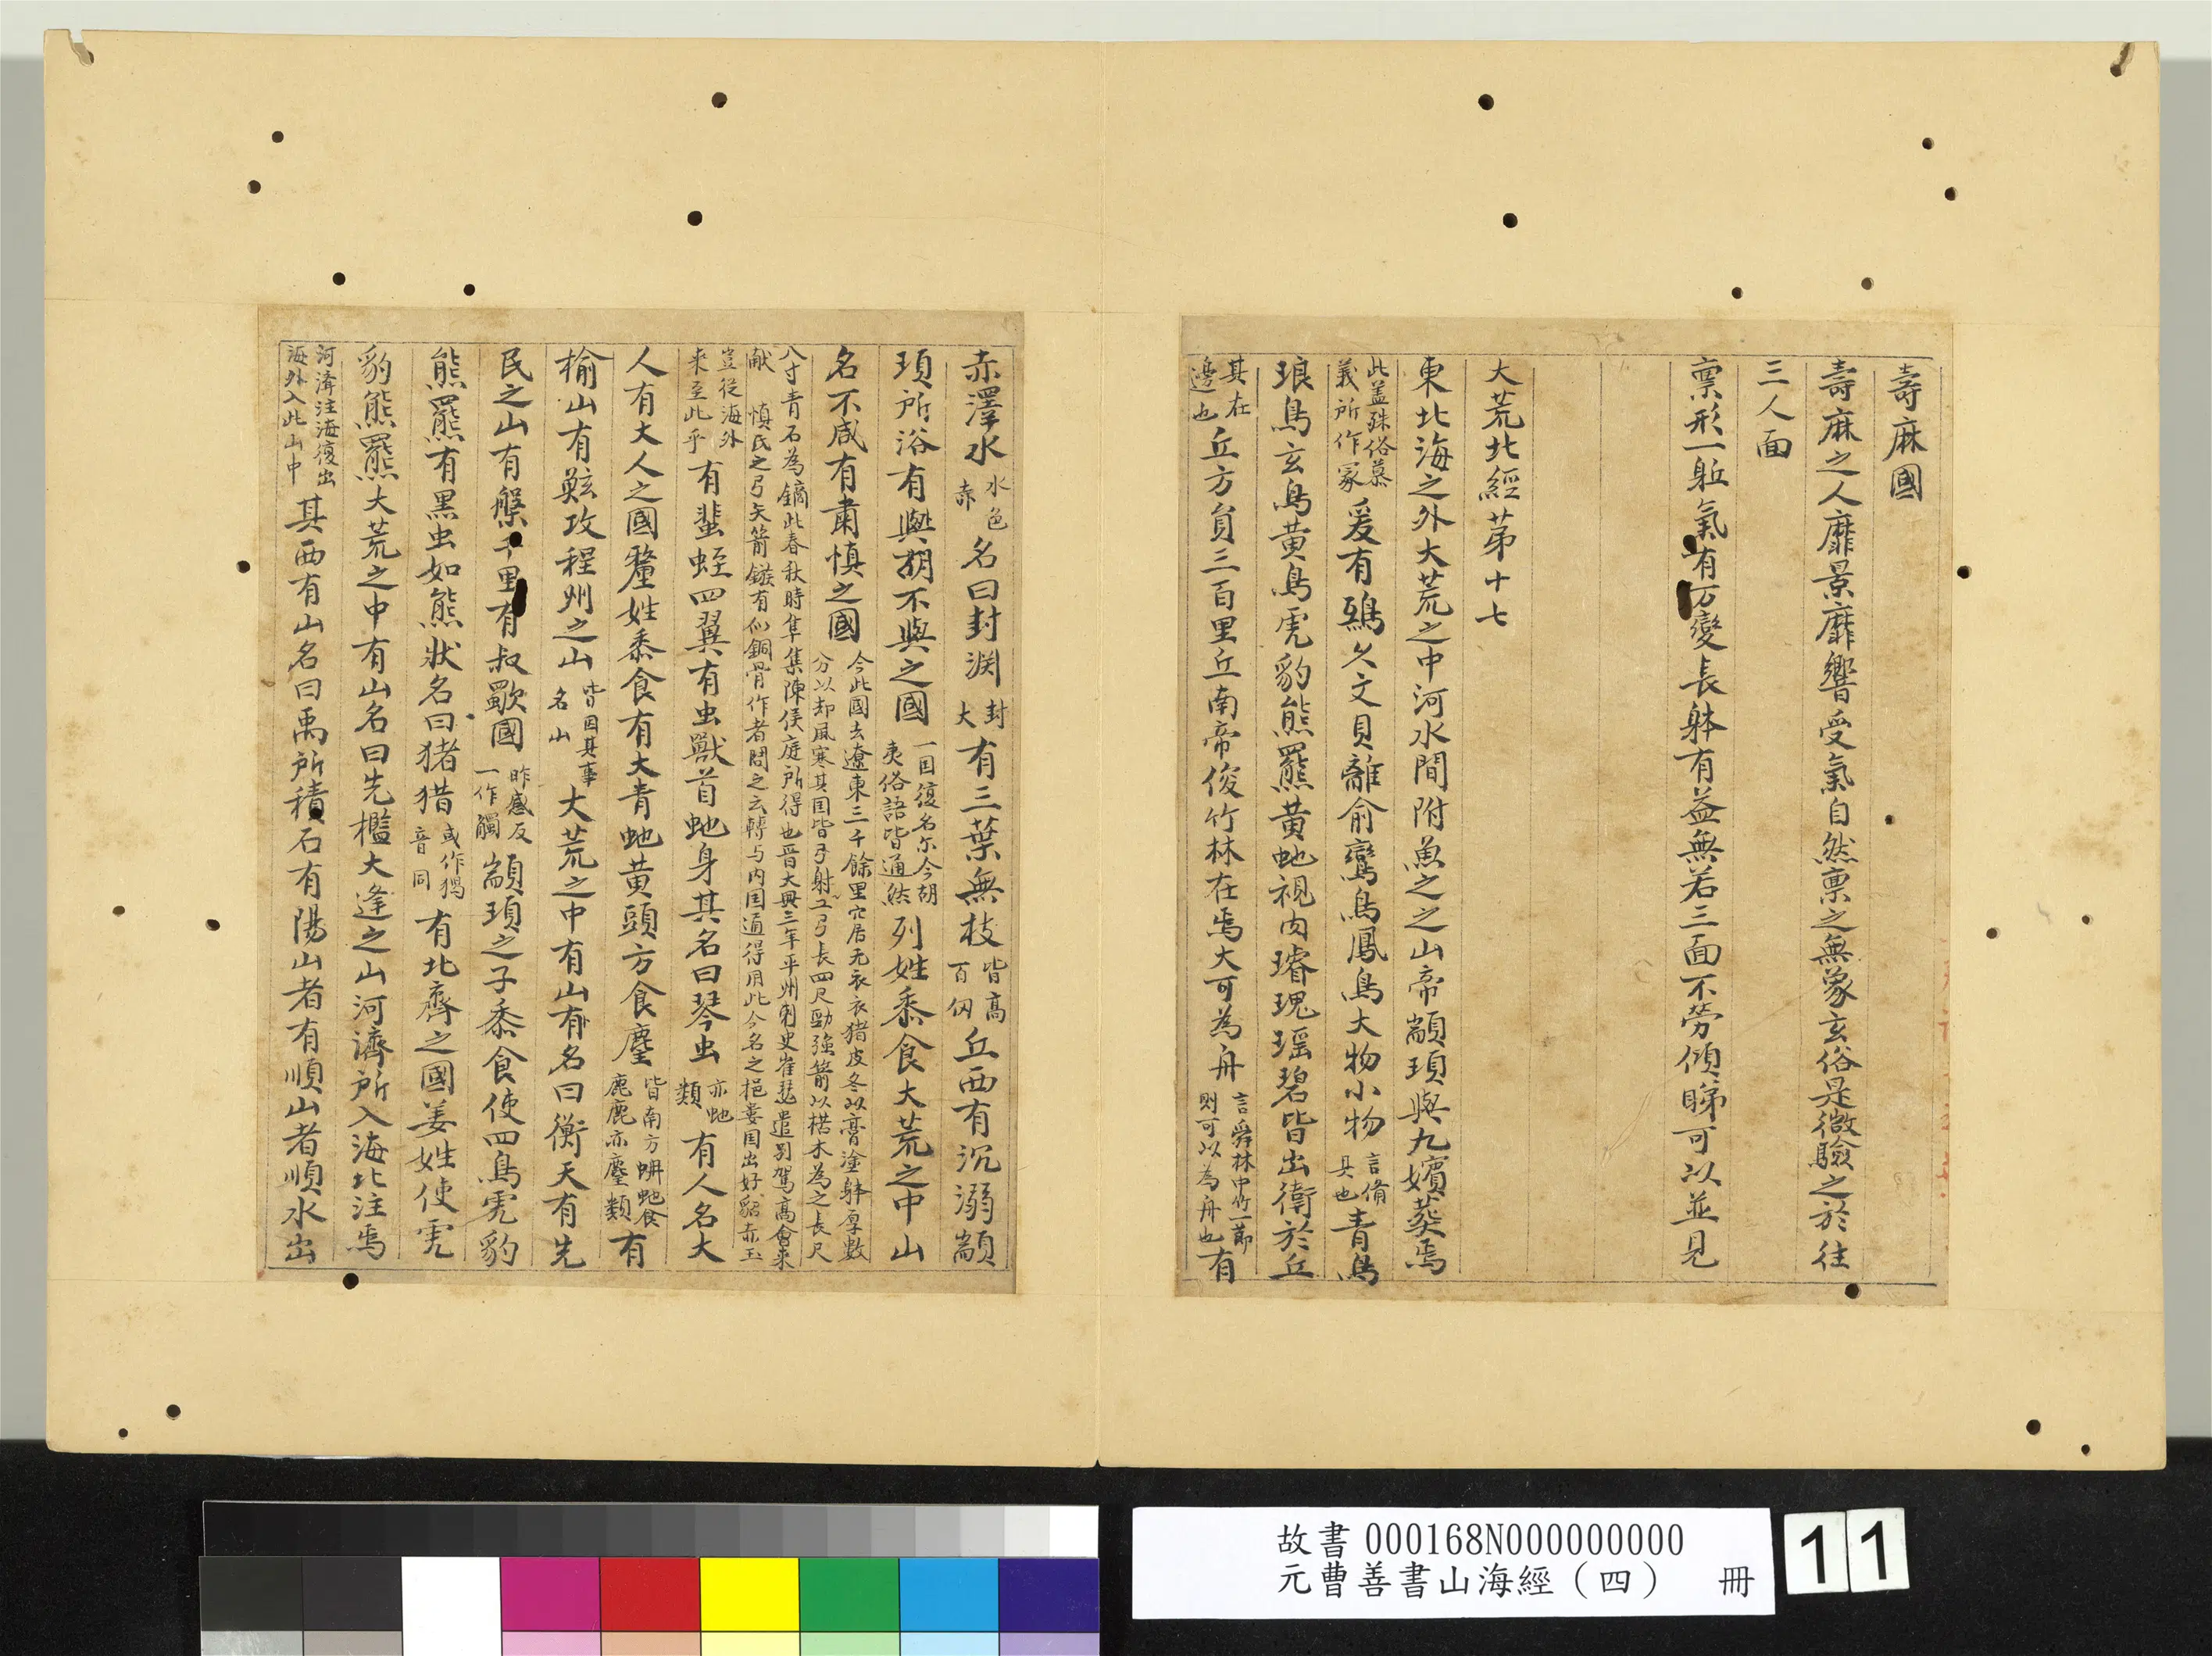 壽麻國
壽麻之人靡景靡響受氣自然稟之無象玄俗是微驗之於往
三人面
稟形一軀氣有万變長躰有益無若三面不勞傾睇可以並見
大荒北經第十七
東北海之外大荒之中河水間附魚之之山帝顓頊與九嬪葵焉
此蓋殊俗慕義所作冢爰有鵶久文貝離俞鸞鳥鳳鳥大物小物言俻具也青鳥
琅鳥玄鳥黄鳥虎豹熊羆黄虵視肉璿瑰瑶碧皆出衛於丘
其在邊也丘方負三百里丘南帝俊竹林在焉大可為舟言舜林中竹一節則可以為舟也有
赤澤水水色赤名曰封渊封大有三葉無枝皆高百仞丘西有沉溺顓
頊所浴有與胡不與之國一囯復名尓今胡夷俗語皆通然列姓黍食大荒之中山
名不咸有肅慎之國今此國去遼東三千餘里穴居无衣衣猪皮冬以膏塗躰厚數分以却風寒其囯皆弓射工弓長四尺勁強箭以楛木為之長尺
八寸青石為鏑此春秋時隼集陳侯庭所得也晋大興三年平州刺史崔毖遣別駕高會来献慎氏之弓矢箭鏃有似銅骨作者問之云轉与内囯通得用此今名之挹婁囯出好貂赤玉
豈從海外来至此乎有蜚蛭四翼有虫獸首虵身其名曰琴虫亦虵類有人名大
人有大人之國釐姓黍食有大青虵黄頭方食麈皆南方蚺虵食鹿鹿亦麈類有
榆山有鯀攻程州之山皆因其事名山大荒之中有山有名曰衡天有先
民之山有槃千里有叔歜國昨感反一作觸顓頊之子黍食使四鳥虎豹
熊羆有黑虫如熊狀名曰猪猎或作獦音同有北齊之國姜姓使虎
豹熊羆大荒之中有山名曰先檻大逢之山河濟所入海北注焉
河濟注海復出海外入此山中其西有山名曰禹所積石有陽山者有順山者順水出
故書 000168N000000000
元曹善書山海經（四） 冊
11